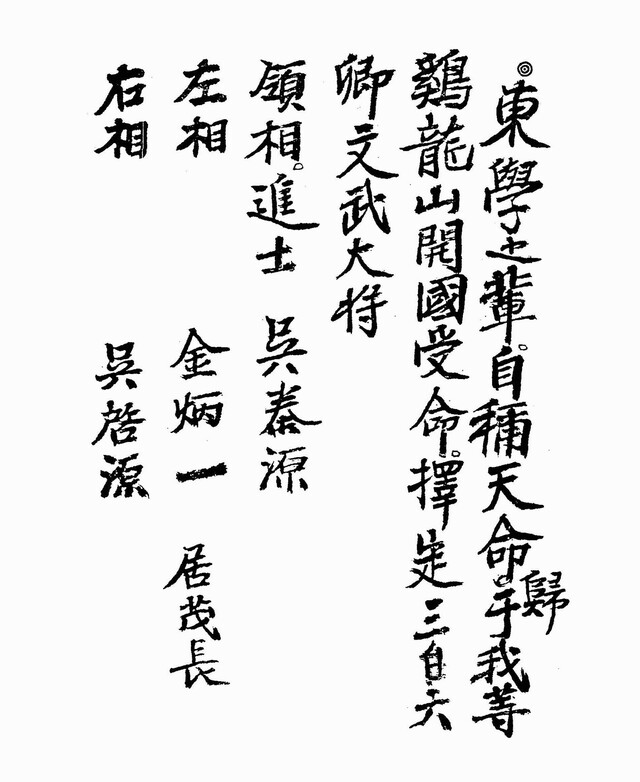 ◎東學之輩。自稱天命歸于我等
鷄龍山開國受命。擇定三百六
卿文武大将
領相。進士 吳泰源
左相 金炳一 居茂長
右相 吳啓源